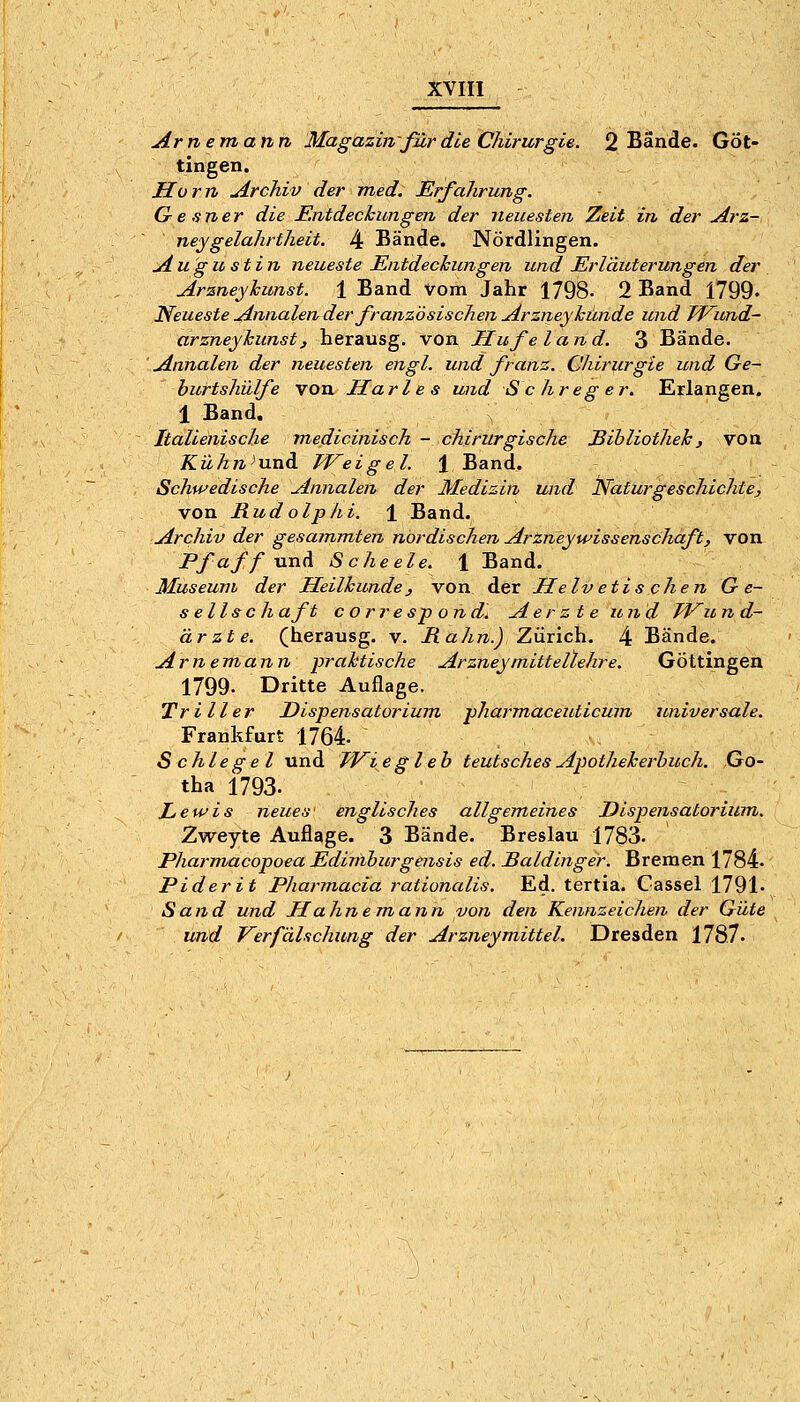 XVIII
Arnemann Magazin für die Chirurgie. 2 Bände. Göt-
tingen.
Horn Archiv der med. Erfahrung.
Gesner die Entdeckungen der neuesten Zeit in der Arz-
neygelahrtheit. 4 Bände. Nördlingen.
Augustin neueste Entdeckungen und Erläuterungen der
Arzneykunst. 1 Band vom Jahr 1798. 2 Band 1799.
Neueste Annalen der französischen Arzneykunde und Wund-
arzneykunst, herausg. von Hufeland. 3 Bände.
Annalen der neuesten engl. und franz. Chirurgie und Ge-
burtshülfe von Harles und Schreger. Erlangen.
1 Band.
Italienische medicinisch - chirurgische Bibliothek, von
Kühn und Weigel. 1 Band.
Schwedische Annalen der Medizin und Naturgeschichte,
von Rudolphi. 1 Band.
Archiv der gesammten nordischen Arzneywissenschaft, von
Pfaff und Scheele. 1 Band.
Museum der Heilkunde, von der Helvetischen Ge-
sellschaft correspond. Aerzte und Wund-
ärzte. (herausg. v. Rahn.) Zürich. 4 Bände.
Arnemann praktische Arzneymittellehre. Göttingen
1799. Dritte Auflage.
Triller Dispensatorium pharmaceuticum universale.
Frankfurt 1764.
Schlegel und Wiegleb teutsches Apothekerbuch. Go-
tha 1793.
Lewis neues englisches allgemeines Dispensatorium.
Zweyte Auflage. 3 Bände. Breslau 1783.
Pharmacopoea Edimburgensis ed. Baldinger. Bremen 1784.
Piderit Pharmacia rationalis. Ed. tertia. Cassel 1791.
Sand und Hahnemann von den Kennzeichen der Güte
und Verfälschung der Arzneymittel. Dresden 1787.